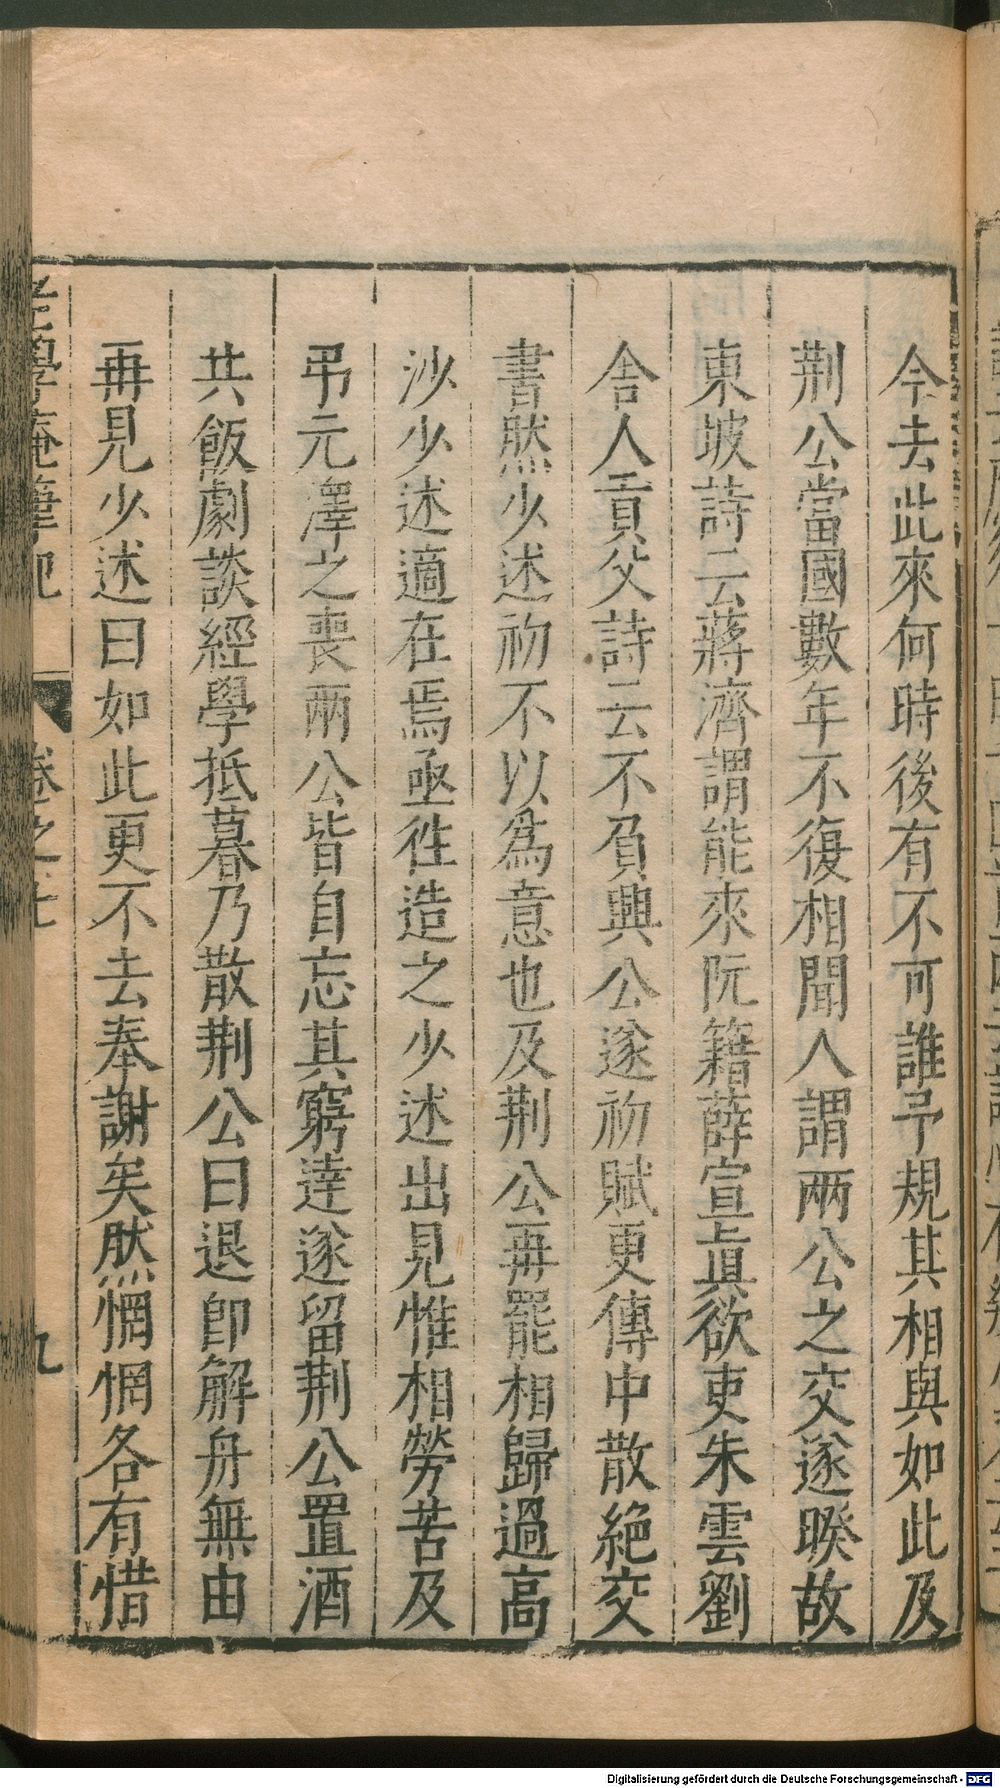 今去此來何時後有不可誰予規其相與如此及
荆公當國數年不復相聞人謂兩公之交遂暌故
東坡詩云蔣濟謂能來阮籍薛宣眞欲吏朱雲劉
舍人貢父詩云不負興公遂初賦更傳中散絶交
書然少述初不以爲意也及荆公再罷相歸過高
沙少述適在焉亟徃造之少述出見惟相勞苦及
弔元澤之喪兩公皆自忘其窮達遂留荆公置酒
共飯劇談經學抵暮乃散荆公曰退卽解舟無由
再見少述曰如此更不去奉謝矣然惘惘各有惜
老學庵筆記 卷之七 九
Digitalisierung gefördert durch die Deutsche Forschungsgemeinschaft - DFG